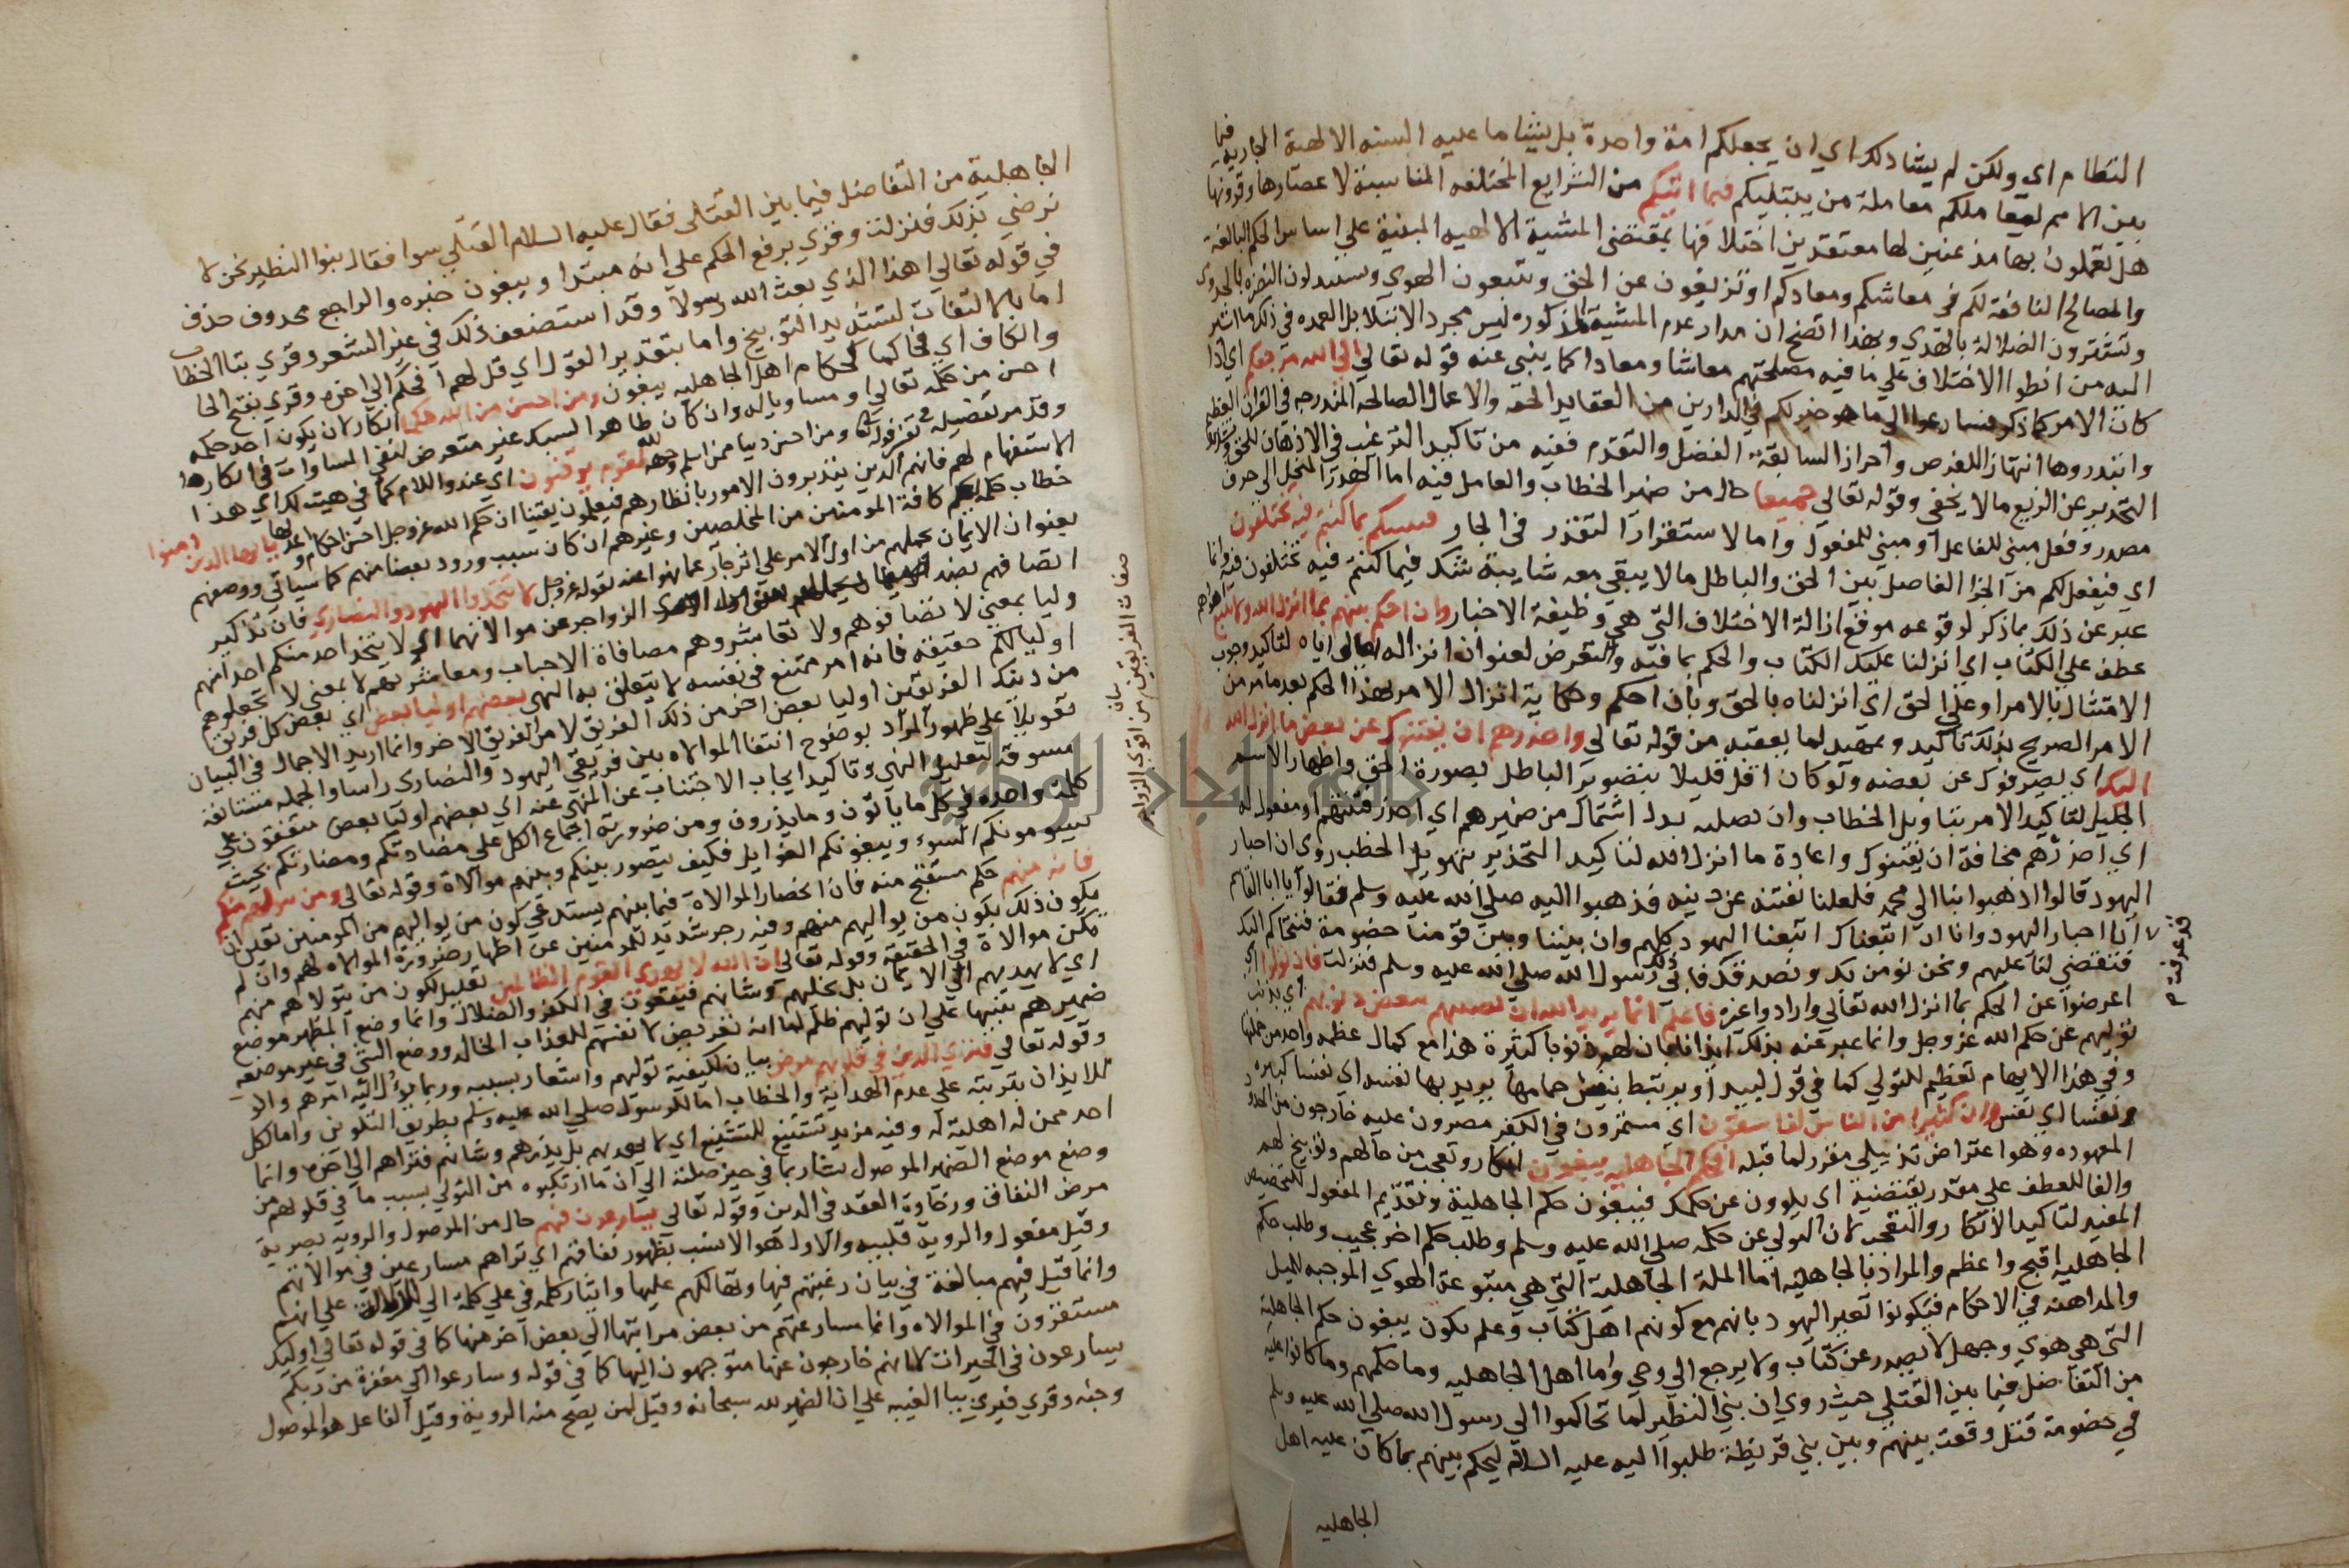 النظام اي ولكن لم يشا ذلك اي ان يجعلكم امة واحدة بل يشا ما عليه السنه الالهية الجارية فيما
بين الامم ليعاملكم معاملة من يبتليكم فيما اتيكم من الشرايع المختلفه المناسبة لاعصارها وقرونها
هل تعملون بها مذعنين لها معتقدين اختلافها بمقتضى المشية الالهيه المبنية علي اساس الحكم البالغة
والمصالح النافعة لكم في معاشكم ومعادكم او تزيغون عن الحق وتتبعون الهوي وتستبدلون المضرة بالجدوى
وتشترون الضلالة بالهدي وبهذا اتضح ان مدار عدم المشية المذكوره ليس مجرد الابتلا بل العمده في ذلك ما اشير
اليه من انطوا الاختلاف علي ما فيه مصلحتهم معاشا ومعادا كما ينبي عنه قوله تعالي الي الله مرجعكم اي اذا
كان الامر كما ذكر فسارعوا الي ما هو خير لكم في الدارين من العقايد الحقه والاعمال الصالحه المندرجه في القران العظيم
وابتدروها انتهازا للفرص واحرازا لسابقة الفضل والتقدم ففيه من تاكيد الترغيب في الاذعان للحق
التحذير عن الزيغ ما لا يخفى وقوله تعالى جميعا حال من ضمير الخطاب والعامل فيه اما المصدر المنحل الي حرف
مصدر وفعل مبني للفاعل او مبني للمفعول واما الاستقرار المقدر في الجار فينبئكم بما كنتم فيه تختلفون
اي فيفعل لكم من الجزا الفاصل بين الحق والباطل ما لا يبقي معه شايبة شك فيما كنتم فيه تختلفون فيه وانما
عبر عن ذلك بما ذكر لوقوعه موقع ازالة الاختلاف التي هي وظيفة الاخبار وان احكم بينهم بما انزل الله ولا تتبع اهواهم
عطف علي الكتاب اي انزلنا عليك الكتاب والحكم بما فيه والتعرض لعنوان انزاله تعالى اياه لتاكيد وجوب
الامتثال بالامر او علي الحق اي انزلناه بالحق وبان احكم وحكاية انزال الامر بهذا الحكم بعد ما مر من
الامر الصريح بذلك تاكيد وتمهيد لما يعقبه من قوله تعالي واحذرهم ان يفتنوك عن بعض ما انزل الله
اليك اي يصرفوك عن بعضه ولو كان اقل قليلا بتصوير الباطل بصورة الحق واظهار الاسم
الجليل لتاكيد الامر بتهويل الخطاب وان بصلته بدل اشتمال من ضميرهم اي احذر فتنتهم او مفعول له
اي احذرهم مخافة ان يفتنوك واعادة ما انزل الله لتاكيد التحذير بتهويل الخطب روي ان احبار
اليهود قالوا اذهبوا بنا الي محمد فلعلنا نفتنه عن دينه فذهبوا اليه صلي الله عليه وسلم فقالوا يا ابا القاسم
قد عرفت
انا احبار اليهود وانا ان اتبعناك اتبعنا اليهود كلهم وان بيننا وبين قومنا خصومة فنتحاكم اليك
فتقضي لنا عليهم ونحن نومن بك ونصدقك فابى ذلك رسول الله صلي الله عليه وسلم فنزلت فان تولوا اي
اعرضوا عن الحكم بما انزل الله تعالي وارادوا غيره فاعلم انما يريد الله ان يصيبهم ببعض ذنوبهم اي بذنب
توليهم عن حكم الله عز وجل وانما عبر عنه بذلك ايذانا بان لهم ذنوبا كثيرة هذا مع كمال عظمه واحد من جملتها
وفي هذا الابهام تعظيم للتولي كما في قول لبيد او يرتبط بعض النفوس حمامها يريد بها نفسه اي نفسا كبيره
ونفسا اي نفس وان كثيرا من الناس لفاسقون اي متمردون في الكفر مصرون عليه خارجون من الحدود
المعهوده وهو اعتراض تذييلي مقرر لما قبله افحكم الجاهلية يبغون انكار وتعجب من حالهم وتوبيخ لهم
والفا للعطف علي مقدر يقتضيه اي يلوون عن حكمك فيبغون حكم الجاهلية وتقديم المفعول للتخصيص
المفيد لتاكيد الانكار والتعجب لان التولي عن حكمه صلي الله عليه وسلم وطلب حكم اخر عجيب وطلب حكم
الجاهليه اقبح واعظم والمراد بالجاهليه اما الملة الجاهلية التي هي متبوعة الهوي الموجبه للميل
والمداهنه في الاحكام فيكون تعيير اليهود بانهم مع كونهم اهل كتاب وعلم يكون يبغون حكم الجاهلية
التي هي هوي وجهل لا يصدر عن كتاب ولا يرجع الي وحي واما اهل الجاهليه وما حكمهم وما كانوا عليه
من التفاضل فيما بين القتلي حيث روي ان بني النضير لما تحاكموا الي رسول الله صلي الله عليه وسلم
في خصومة قتل وقعت بينهم وبين بني قريظة طلبوا اليه عليه السلام ليحكم بينهم بما كان عليه اهل
الجاهليه
الجاهلية من التفاضل فيما بين القتلى فقال عليه السلام القتلي سوا فقال بنوا النضير نحن لا
نرضي بذلك فنزلت وقري برفع الحكم علي انه مبتدا ويبغون خبره والراجع محذوف حذف
في قوله تعالي اهذا الذي بعث الله رسولا وقد استضعف ذلك في غير الشعر وقري بتا الخطاب
اما بالالتفات لتشديد التوبيخ واما بتقدير القول اي قل لهم افحكم الي اخره وقري بفتح الحا
والكاف اي فحاكما كحكام اهل الجاهليه يبغون ومن احسن من الله حكما انكار لان يكون احد حكمه
احسن من حكمه تعالي او مساويا له وان كان ظاهر السبك غير متعرض لنفي المساوات وانكارها
وقد مر تفصيله في تفسير قوله تعالى ومن احسن دينا ممن اسلم وجهه لله لقوم يوقنون اي عندهم واللام كما في هيت لك اي هذا
الاستفهام لهم فانهم الذين يتدبرون الامور بانظارهم فيعلمون يقينا ان حكم الله عز وجل احسن الاحكام واعدلها يا ايها الذين امنوا
خطاب كافة المومنين من المخلصين وغيرهم ان كان سبب ورود بعضا منهم كما سياتي ووصفهم
بعنوان الايمان لحملهم من اول الامر على انزجار عما نهوا عنه بقوله عز وجل لا تتخذوا اليهود والنصاري فان تذكير
اتصافهم بضد صفات الفريقين من اقوى الزواجر عن موالاتهما اي لا يتخذ احد منكم احدا منهم
وليا بمعني لا تصافوهم ولا تعاشروهم مصافاة الاحباب ومعاشرتهم لا بمعني لا تجعلوهم
اوليا لكم حقيقه فانه امر ممتنع في نفسه لا يتعلق به النهي بعضهم اوليا بعض اي بعض كل فريق
من ذينك الفريقين اوليا بعض اخر من ذلك الفريق لا من الفريق الاخر وانما اريد الاجمال في البيان
تعويلا علي ظهور المراد بوضوح انتفا الموالاه بين فريقي اليهود والنصارى راسا والجمله مستانفة
مسوقه لتعليل النهي وتاكيد ايجاب الاجتناب عن المنهي عنه اي بعضهم اوليا بعض متفقون علي
كلمة واحده في كل ما ياتون وما يذرون ومن ضرورته اجماع الكل علي مضادتكم ومضارتكم بحيث
يسومونكم السوء ويبغونكم الغوايل فكيف يتصور بينكم وبينهم موالاة وقوله تعالى ومن يتولهم منكم
فانه منهم حكم مستنتج منه فان انحصار الموالاة فيما بينهم يستدعي كون من يواليهم من المومنين تعين ان
يكون ذلك بكون من يواليهم منهم وفيه زجر شديد للمومنين عن اظهار صورة الموالاه لهم وان لم
تكن موالاة في الحقيقة وقوله تعالي ان الله لا يهدي القوم الظالمين تعليل لكون من يتولاهم منهم
اي لا يهديهم الي الايمان بل يخليهم وشانهم فيقعون في الكفر والضلال وانما وضع المظهر موضع
ضميرهم تنبيها علي ان توليهم ظلم لما انه تعريض لانفسهم للعذاب الخالد ووضع الشي في غير موضعه
وقوله تعالي فترى الذين في قلوبهم مرض بيان لكيفية توليهم واشعار بسببه وربما يؤل اليه امرهم والفا
للايذان بترتبه علي عدم الهداية والخطاب اما للرسول صلي الله عليه وسلم بطريق التلوين واما لكل
احد ممن له اهلية له وفيه مزيد تشنيع للتشنيع اي لا يهديهم بل يذرهم وشانهم فتراهم الي اخره وانما
وضع موضع الضمير الموصول ليشار بما في حيز صلته الي ان ما ارتكبوه من التولي بسبب ما في قلوبهم من
مرض النفاق ورخاوة العقد في الدين وقوله تعالي يسارعون فيهم حال من الموصول والروية بصرية
وقيل مفعول والروية قلبيه والاول هو الانسب بظهور نفاقهم اي تراهم مسارعين في موالاتهم
وانما قيل فيهم مبالغة في بيان رغبتهم فيها وتهالكهم عليها وايثار كلمة في علي كلمة الي للدلالة علي انهم
مستقرون في الموالاه وانما مسارعتهم من بعض مراتبها الي بعض اخر منها كما في قوله تعالي اوليك
يسارعون في الخيرات لا انهم خارجون عنها متوجهون اليها كما في قوله وسارعوا الي مغفرة من ربكم
وجنة وقري فيري بيا الغيبه علي ان الضمير لله سبحانه وقيل لمن يصح منه الروية وقيل الفاعل هو الموصول
صفات الفريقين من اقوي الزواجر
بيان